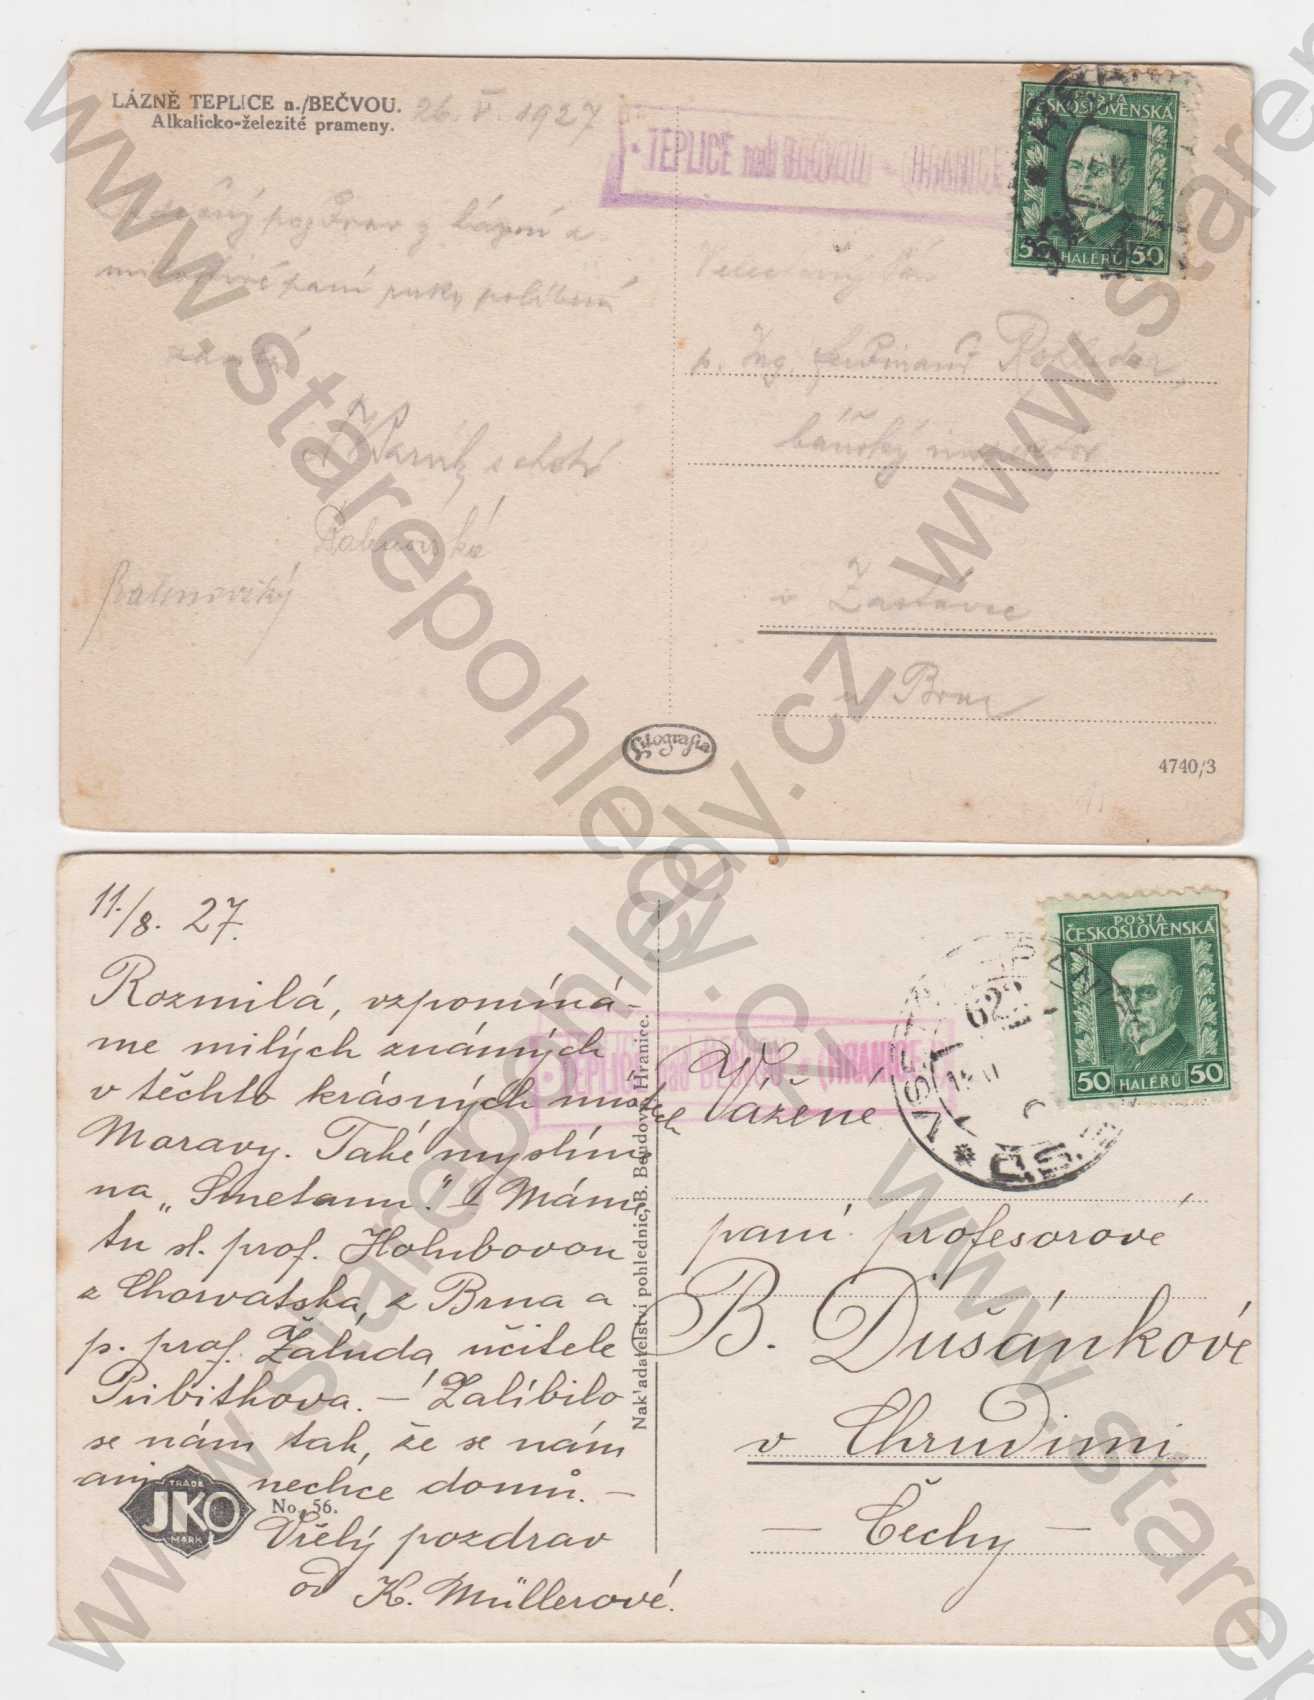 LÁZNĚ TEPLICE n./BEČVOU.
Alkalicko-železité prameny.
26. V. 1927
TEPLICE nad BEČVOU - (HRANICE
POŠTA
ČESKOSLOVENSKÁ
50 HALÉŘŮ 50
pozdrav z lázní a
milostivé paní ruky políbení
Velectěný Pán
p. Ing. Ferdinand
báňský inspektor
v Zastávce
u Brna
Litografia
4740/3
11./8. 27.
Rozmilá, vzpomíná-
me milých známých
v těchto krásných místech
Moravy. Také myslíme
na „Smetanu". - Máme
tu sl. prof. Holubovou
z Chorvatska, z Brna a
p. prof. Žalúda, učitele
Pribitkova. - Zalíbilo
se nám tak, že se nám
ani nechce domů. -
Vřelý pozdrav
od K. Müllerové.
TRADE
JKO
MARK
No. 56.
Nakladatelství pohlednic, B. Boudový, Hranice.
TEPLICE nad BEČVOU - (HRANICE
POŠTA
ČESKOSLOVENSKÁ
50 HALÉŘŮ 50
Vážené
paní profesorové
B. Dušánkové
v Chrudimi
- Čechy -
www.starepohledy.cz
www.starepohledy.cz